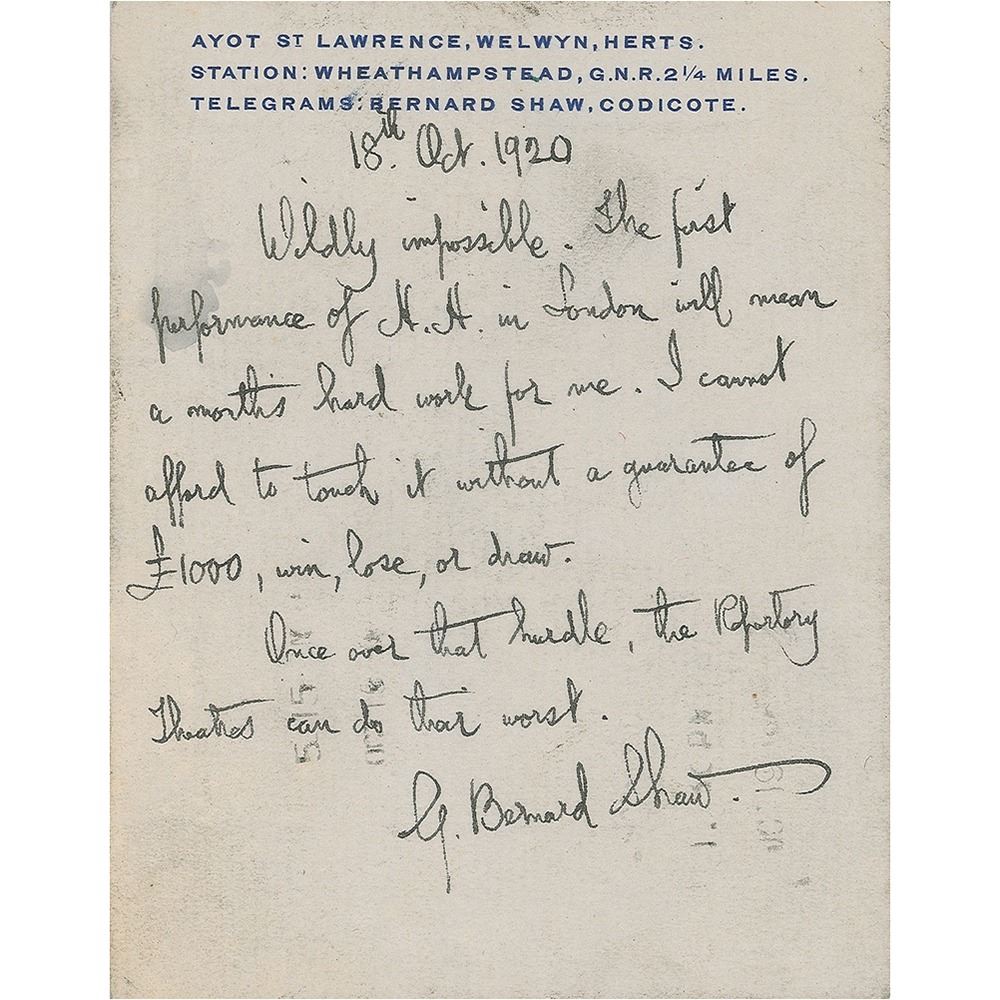 AYOT ST LAWRENCE, WELWYN, HERTS.
STATION: WHEATHAMPSTEAD, G.N.R. 2 1/4 MILES.
TELEGRAMS: BERNARD SHAW, CODICOTE.
18th. Oct. 1920
Wildly impossible. The first
performance of H.H. in London will mean
a month's hard work for me. I cannot
afford to touch it without a guarantee of
£1000, win, lose, or draw.
Once over that hurdle, the Repertory
Theatres can do their worst.
G. Bernard Shaw.